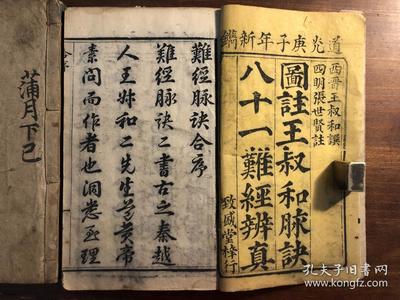 道光庚子年新鐫
西晉王叔和譔
四明張世賢註
圖註王叔和脉訣
八十一難經辨真
致盛堂梓行
難經脉訣合序
難經脉訣二書古之秦越
人王叔和二先生黃帝
素問而作者也洞悉理
蒲月下已
孔夫子旧书网
www.kongfz.com